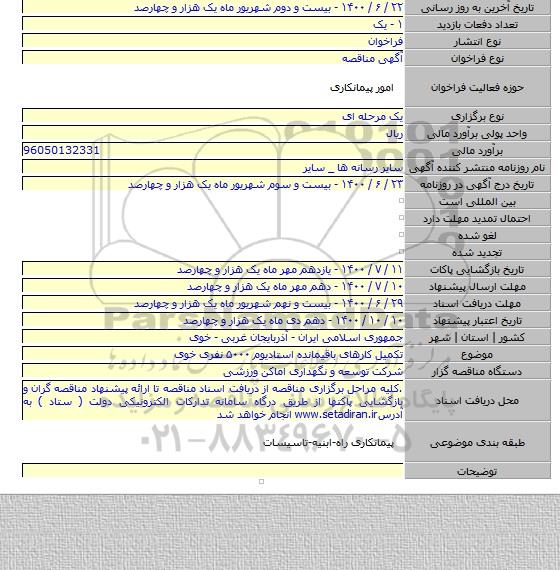 تاریخ آخرین به روز رسانی ۲۲ / ۶ / ۱۴۰۰ - بیست و دوم شهریور ماه یک هزار و چهارصد
تعداد دفعات بازدید ۱ - یک
نوع انتشار فراخوان
نوع فراخوان آگهی مناقصه
حوزه فعالیت فراخوان امور پیمانکاری
نوع برگزاری یک مرحله ای
واحد پولی برآورد مالی ریال
برآورد مالی 96050132331
نام روزنامه منتشر کننده آگهی سایر رسانه ها _ سایر
تاریخ درج آگهی در روزنامه ۲۳ / ۶ / ۱۴۰۰ - بیست و سوم شهریور ماه یک هزار و چهارصد
بین المللی است
احتمال تمدید مهلت دارد
لغو شده
تجدید شده
تاریخ بازگشایی پاکات ۱۱ / ۷ / ۱۴۰۰ - یازدهم مهر ماه یک هزار و چهارصد
مهلت ارسال پیشنهاد ۱۰ / ۷ / ۱۴۰۰ - دهم مهر ماه یک هزار و چهارصد
مهلت دریافت اسناد ۲۹ / ۶ / ۱۴۰۰ - بیست و نهم شهریور ماه یک هزار و چهارصد
تاریخ اعتبار پیشنهاد ۱۰ / ۱۰ / ۱۴۰۰ - دهم دی ماه یک هزار و چهارصد
کشور | استان | شهر جمهوری اسلامی ایران - آذربایجان غربی - خوی
موضوع تکمیل کارهای باقیمانده استادیوم ۵۰۰۰ نفری خوی
دستگاه مناقصه گزار شرکت توسعه و نگهداری اماکن ورزشی
محل دریافت اسناد .کلیه مراحل برگزاری مناقصه از دریافت اسناد مناقصه تا ارائه پیشنهاد مناقصه گران و
بازگشایی پاکتها از طریق درگاه سامانه تدارکات الکترونیکی دولت ( ستاد ) به
آدرس www.setadiran.ir انجام خواهد شد
طبقه بندی موضوعی پیمانکاری راه-ابنیه-تاسیسات
توضیحات
۰۲۱-۸۸۳۴۹۶۷۰-۵